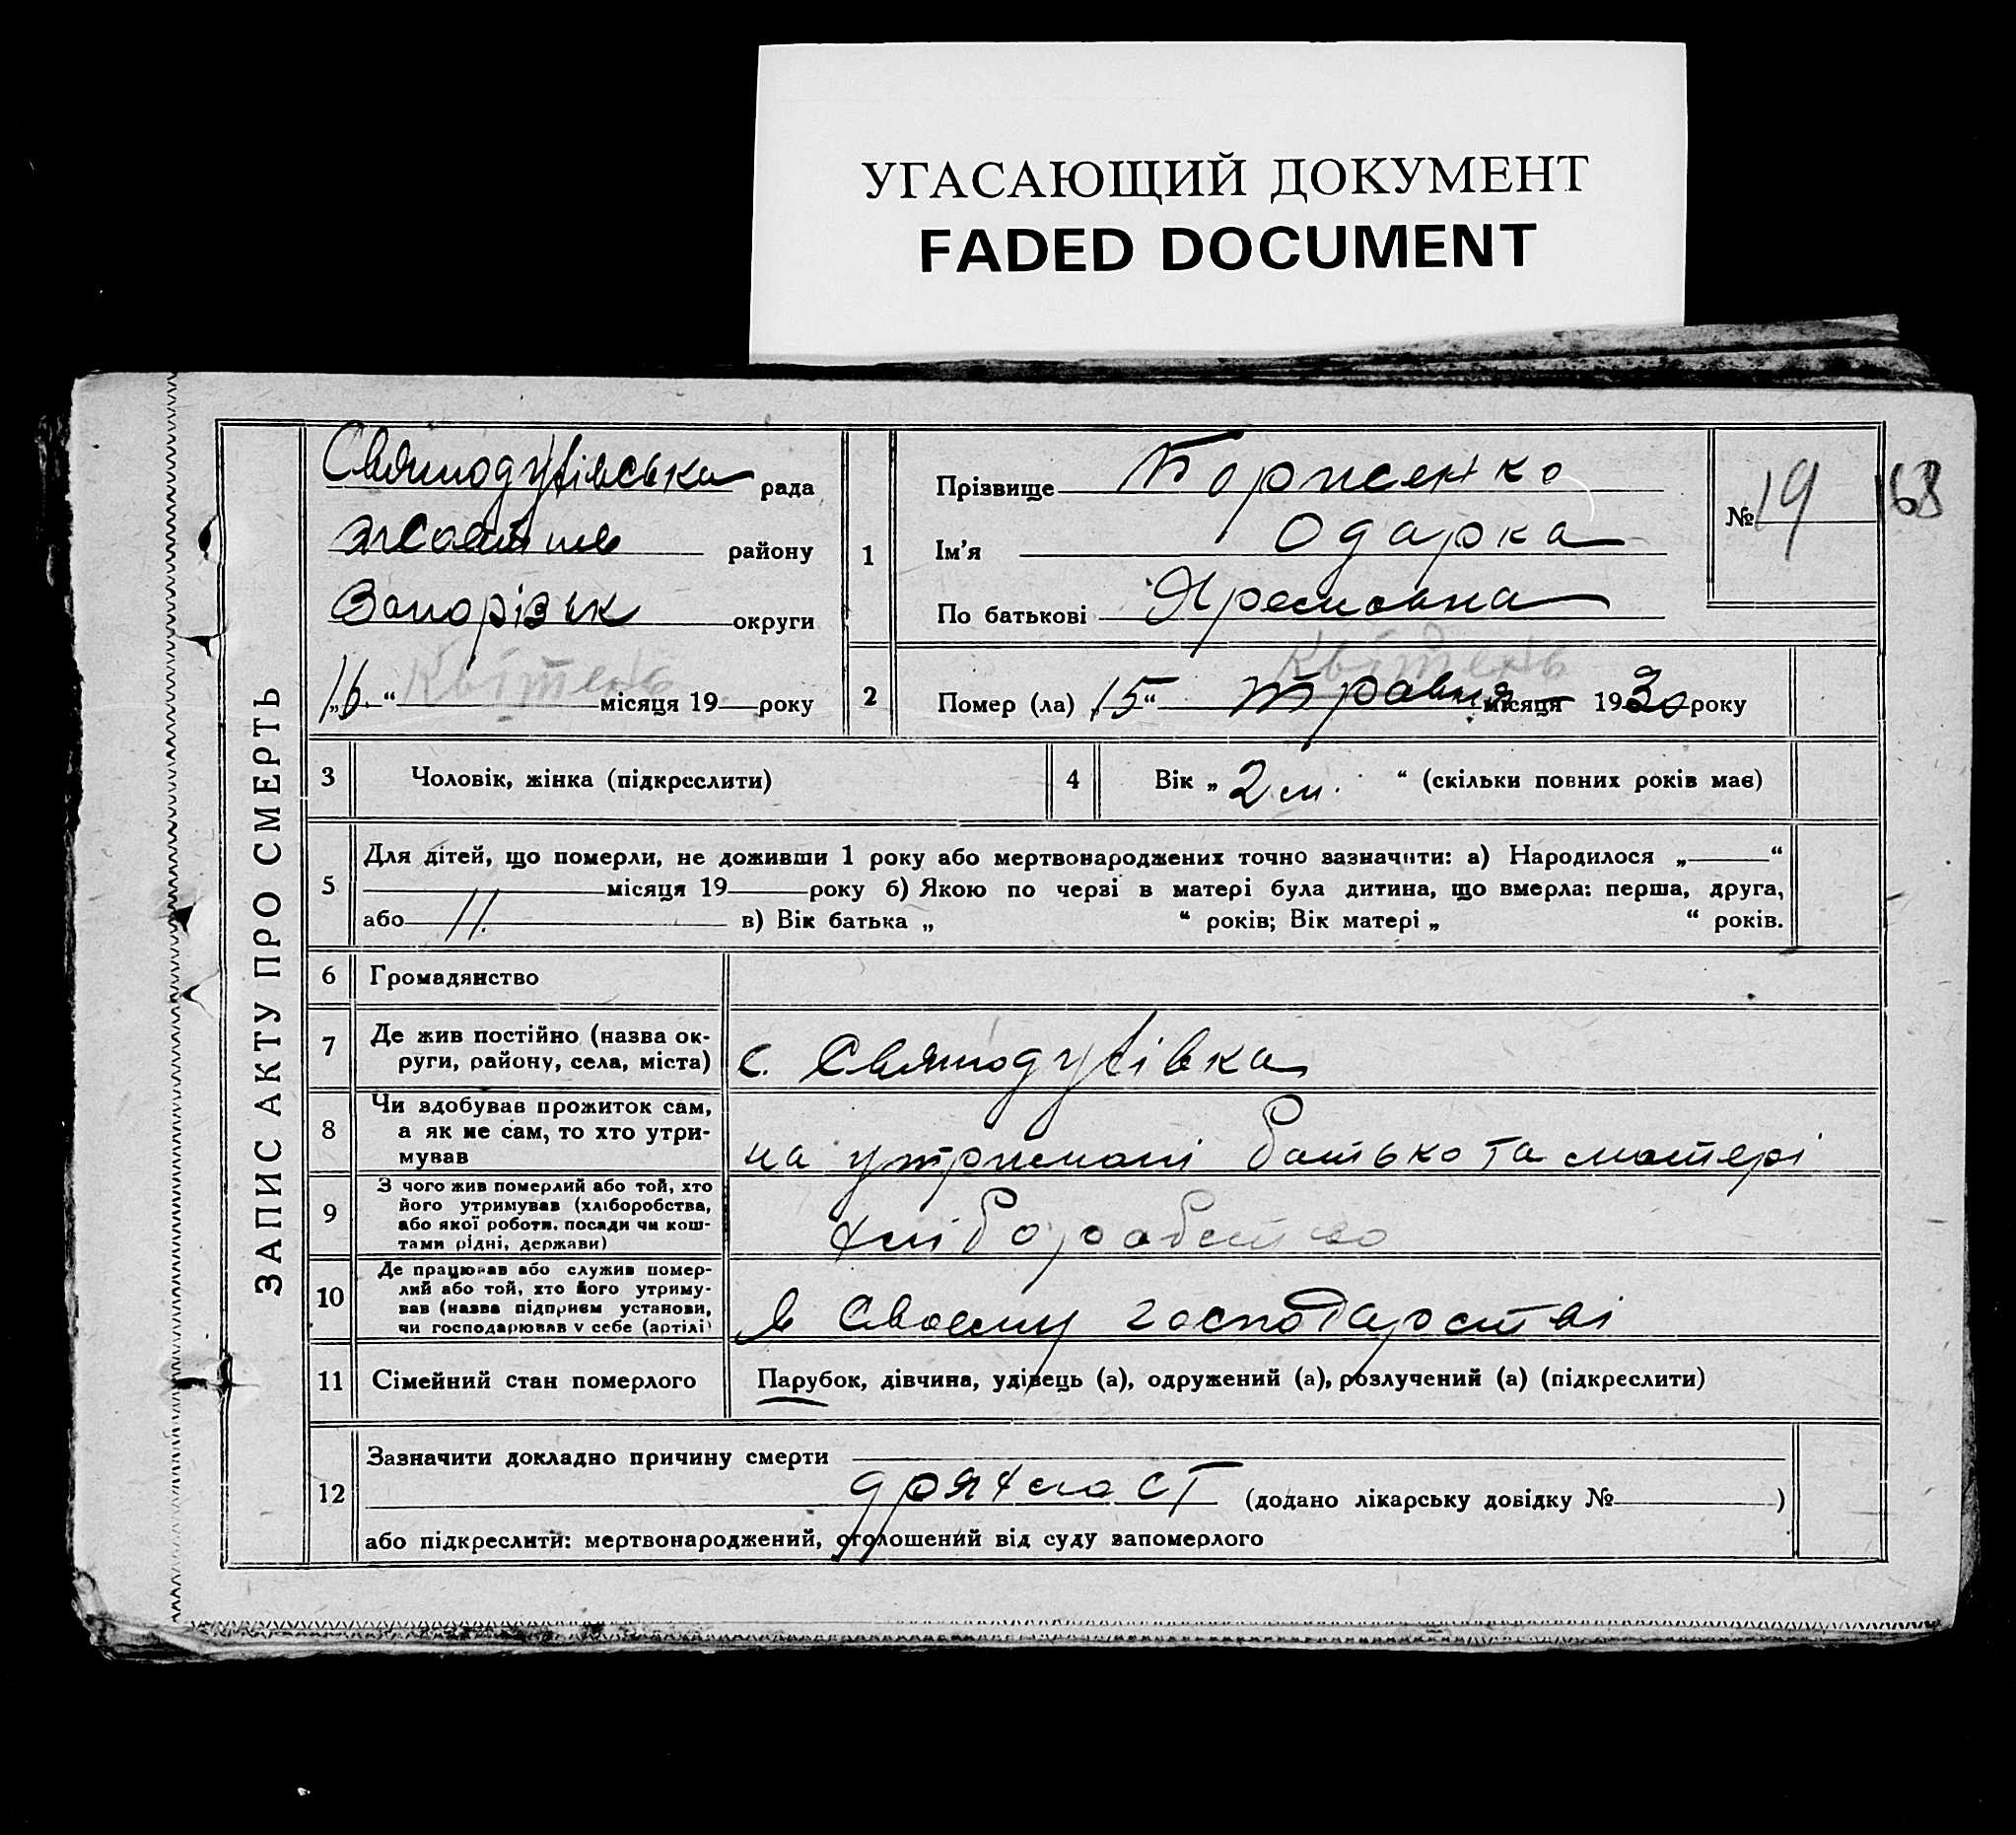 УГАСАЮЩИЙ ДОКУМЕНТ
FADED DOCUMENT
ЗАПИС АКТУ ПРО СМЕРТЬ
Святодухівська рада
району
Запорізьк округи
„16“ Квітень місяця 19 року
1
Прізвище Борисенко
Ім'я Одарка
По батькові
№ 19
168
2
Помер (ла) „15“ травня Квітень місяця 1930 року
3 Чоловік, жінка (підкреслити)
4 Вік „2 м.“ (скільки повних років має)
5
Для дітей, що померли, не доживши 1 року або мертвонароджених точно зазначити: а) Народилося „ “
місяця 19 року б) Якою по черзі в матері була дитина, що вмерла: перша, друга,
або 11. в) Вік батька „ “ років; Вік матері „ “ років.
6 Громадянство
7 Де жив постійно (назва ок-
руги, району, села, міста)
с. Святодухівка
8
Чи здобував прожиток сам,
а як не сам, то хто утри-
мував
на утримані батько та матері
9
З чого жив померлий або той, хто
його утримував (хліборобства,
або якої роботи, посади чи кош-
тами рідні, держави)
хліборобство
10
Де працював або служив помер-
лий або той, хто його утриму-
вав (назва підприєм установи,
чи господарював у себе (артілі)
в своєму господарстві
11 Сімейний стан померлого
Парубок, дівчина, удівець (а), одружений (а), розлучений (а) (підкреслити)
12
Зазначити докладно причину смерти
(додано лікарську довідку № )
або підкреслити: мертвонароджений, оголошений від суду запомерлого